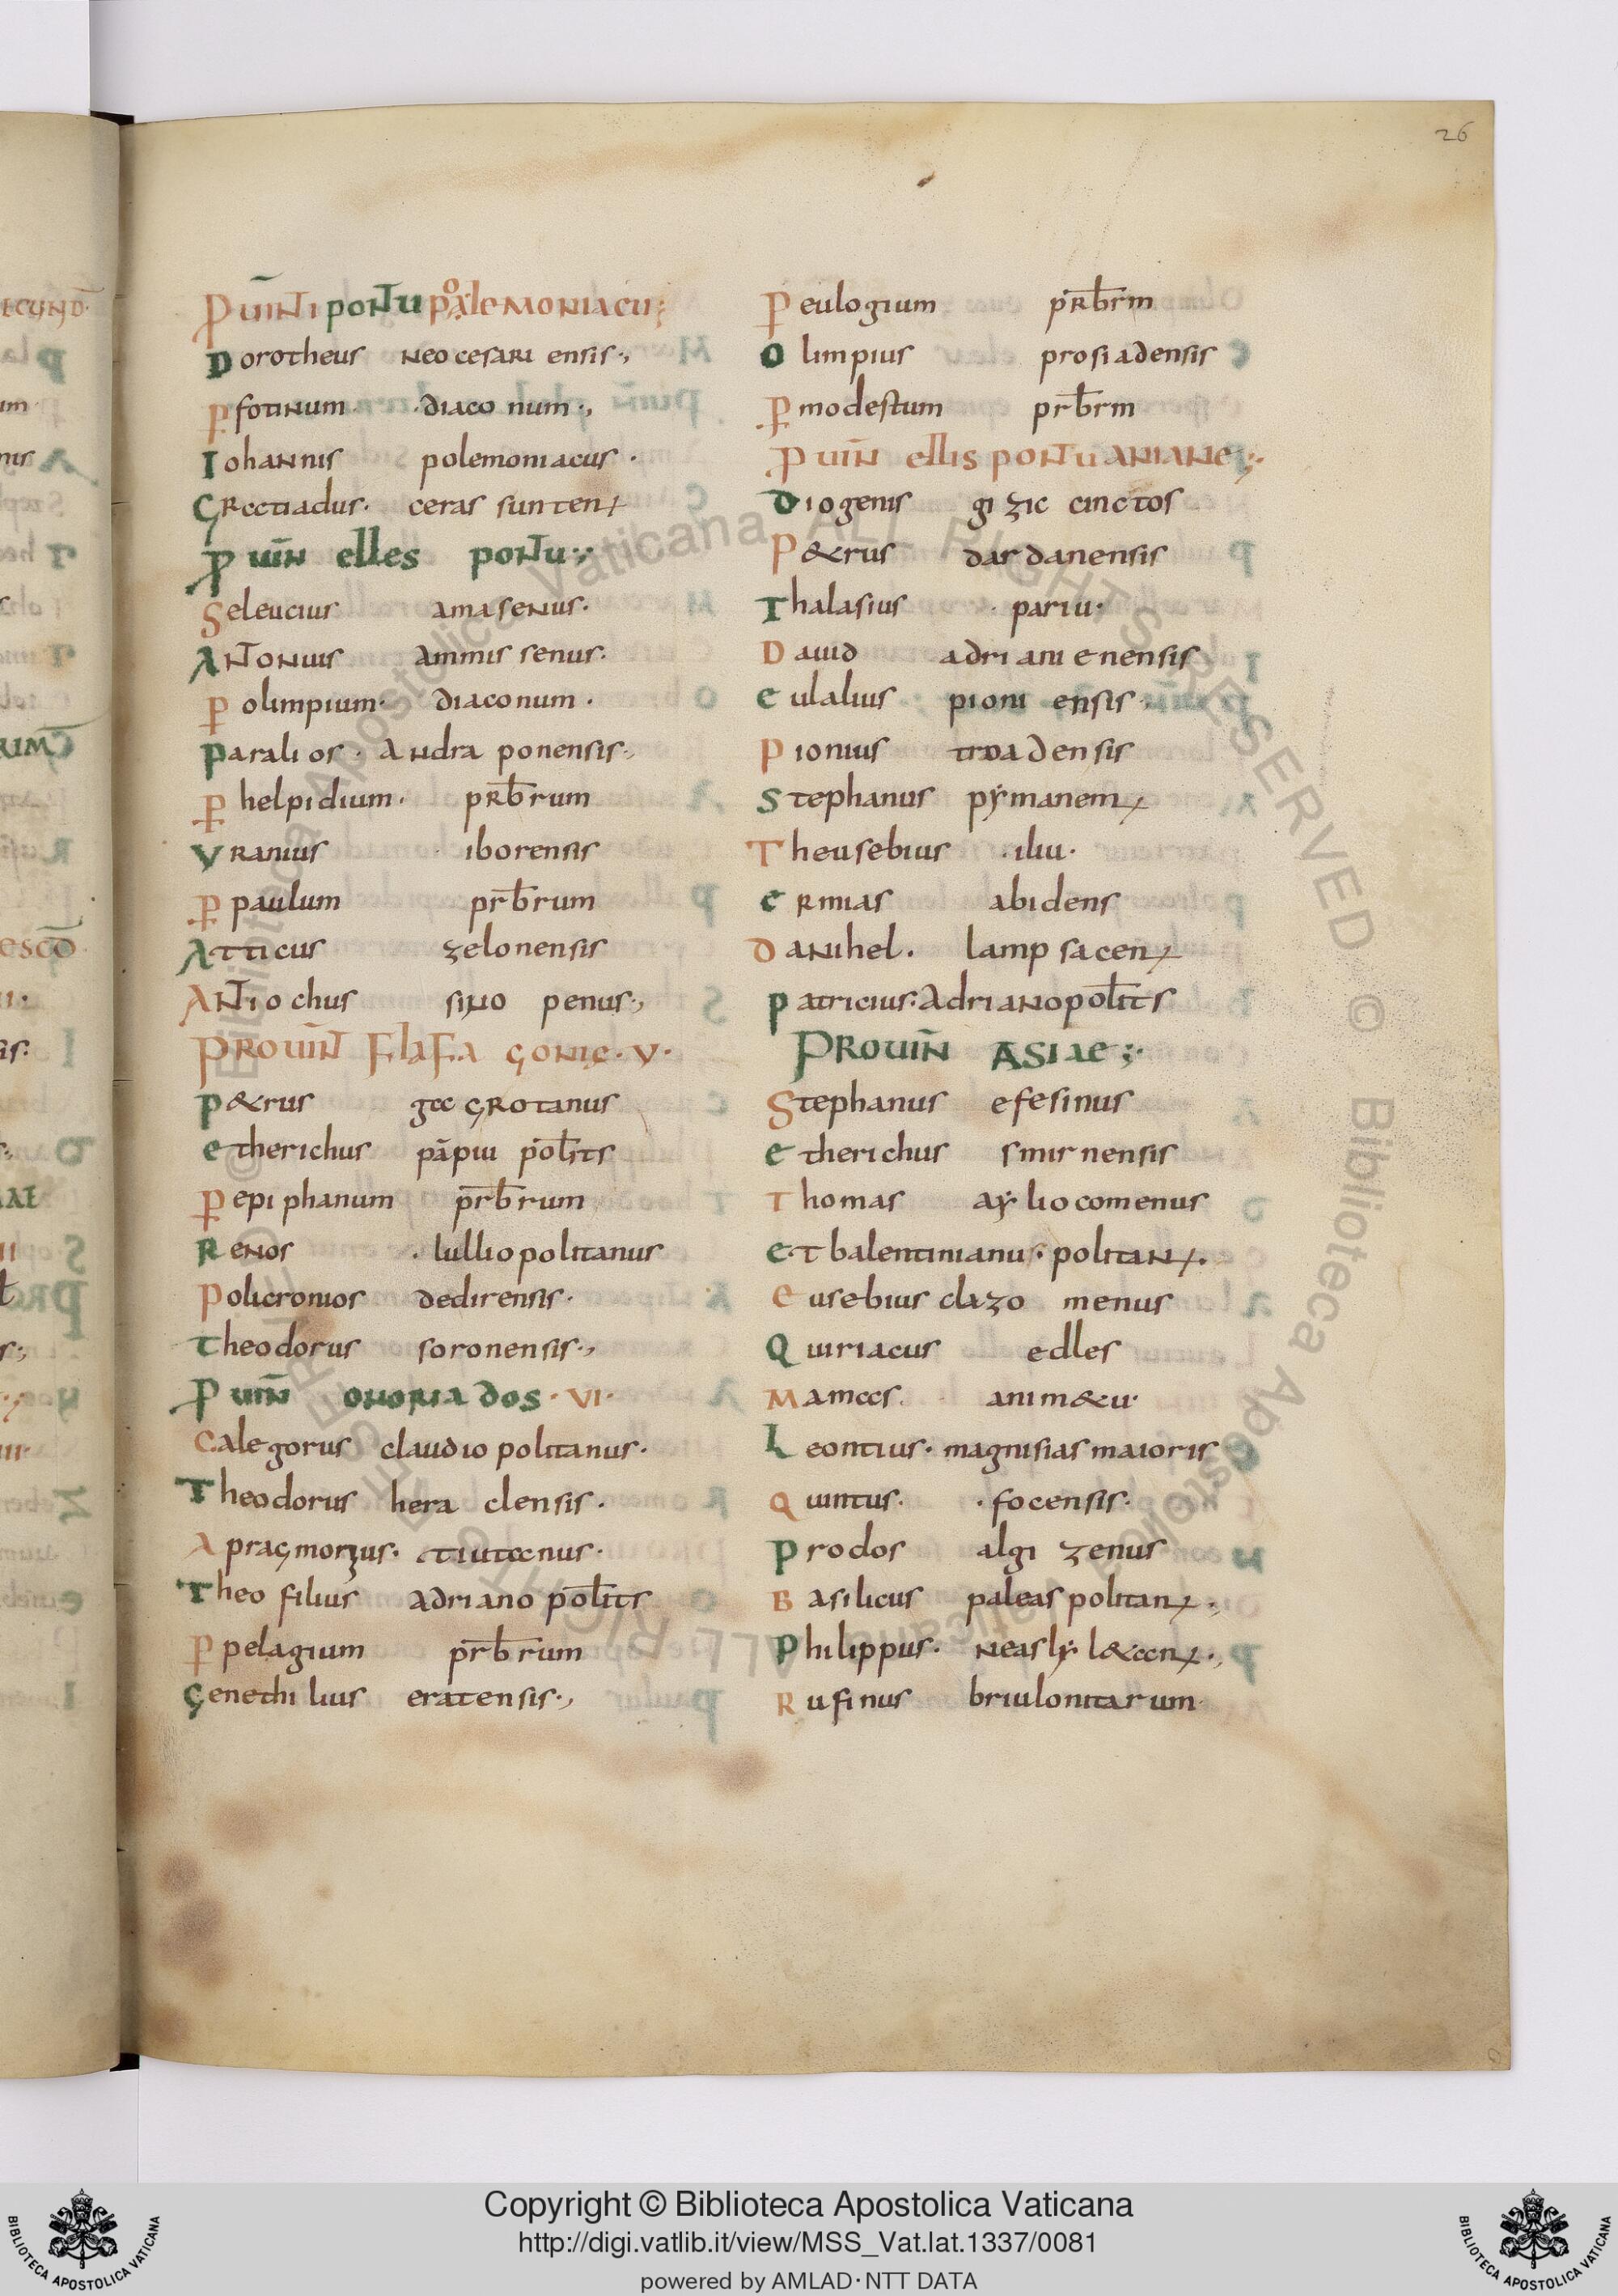 26
Puīnti pontu poxlemoniacu;
Dorotheus neocesari ensis.,
P̲ fotinum diaconum.,
Iohannis polemoniacus.
Grectiadus. ceras sunten
P̲ uīn elles pontu:
Seleucius amasenus.
Antonuis ammis senus.
P̲ olimpium. diaconum.
Paralios. Andra ponensis.,
P̲ helpidium. prb̄rum
Vranius iborensis
P̲ paulum pr̄b̄rum
Atticus zelonensis
Antiochus sino penus.,
Prouīnt Flafa gonie. V.
P&rus gec grotanus
etherichus pāpiu pol̄its
P̲ epiphanum pr̄b̄rum
Renos . lulliopolitanus
Policronios dedirensis.
Theodorus soronensis.,
P uin̄ onoriados. VI.
Calegorus claudio politanus.
Theodorus hera clensis.
Theofilius adriano pol̄its
P̲ pelagium pr̄b̄rum
Genethi lius eratensis.,
P̲ eulogium prb̄rm
Olimpius prosiadensis
P̲ modestum prb̄rm
P uin̄ ellis pontu aniane;.
Diogenis gi zic cinctos
P&rus dardanensis
Thalasius pariu.
Dauid adriani enensis
eulalius pioni ensis
Pionius troadensis
Stephanus pymanem
Theusebius . iliu.
ermias abidens
Danihel. lampsacen
Patricius. Adrianopol̄its
Prouin̄ Asiae;.
Stephanus efesinus
etherichus smirnensis
Thomas ay liocomenus
et balentinianus. politan.
eusebius clazo menus
Quiriacus edles
Mamees. anim&u.
Leontius. magnisias maioris
Quintus. . focensis.
Prodos algi zenus
Basilicus paleas politan.,
Philippus. neasly l&ecen.,
Rufinus briulonitarum
Copyright © Biblioteca Apostolica Vaticana
http://digi.vatlib.it/view/MSS_Vat.lat.1337/0081
powered by AMLAD·NTT DATA
BIBLIOTECA APOSTOLICA VATICANA
BIBLIOTECA APOSTOLICA VATICANA
© Biblioteca Apostolica Vaticana ALL RIGHTS RESERVED © Biblioteca Apostolica Vaticana ALL RIGHTS RESERVED